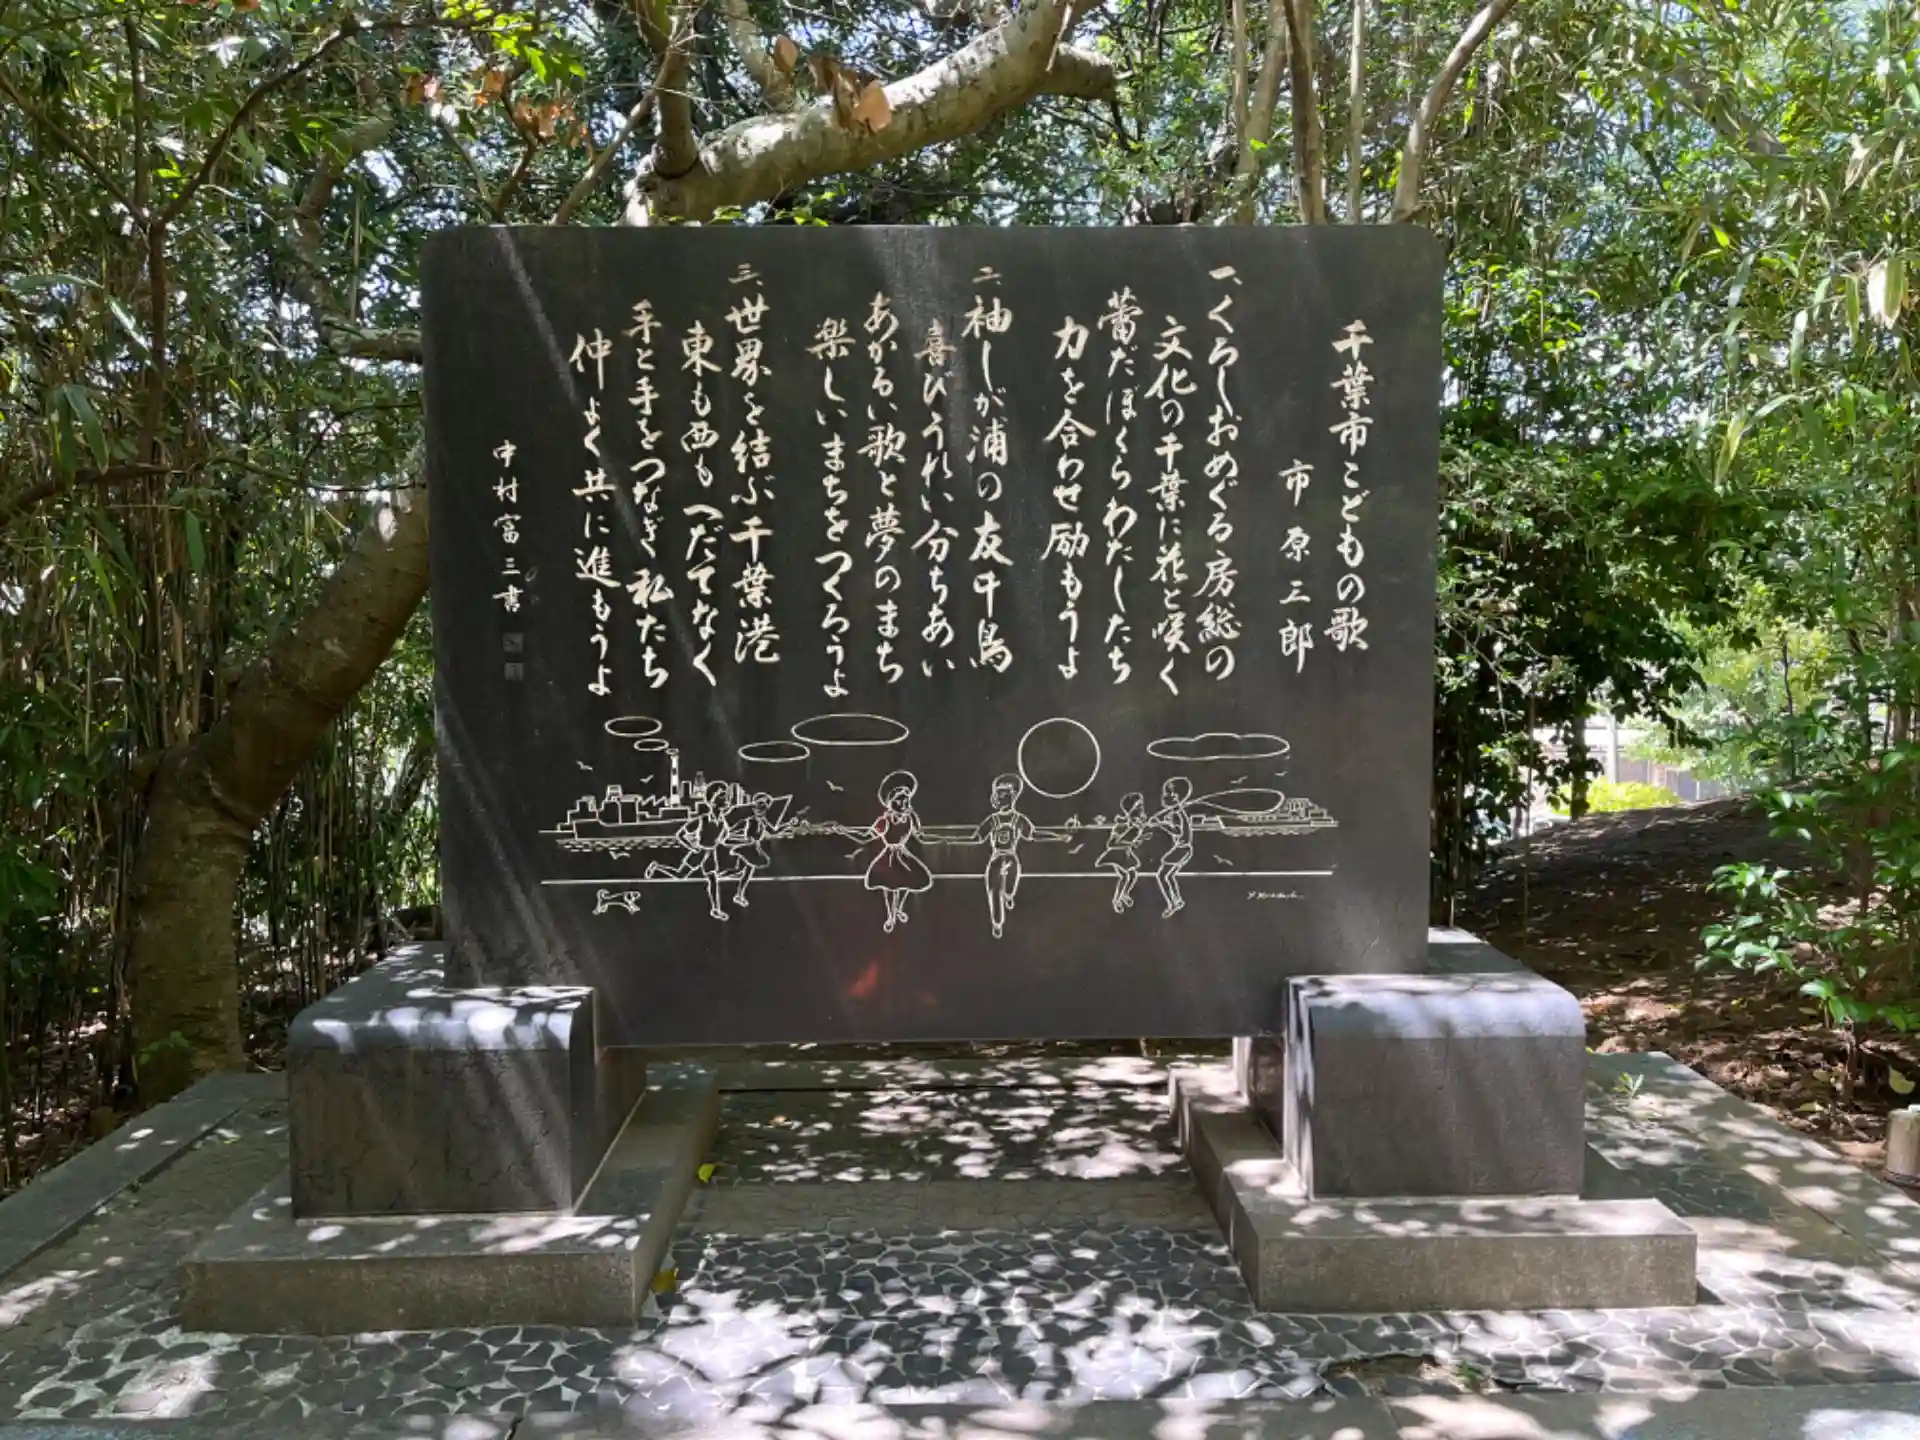 千葉市こどもの歌
市原三郎
一、くろしおめぐる房総の
文化の千葉に花と咲く
蕾だぼくらわたしたち
力を合わせ励もうよ
二、袖しが浦の友千鳥
喜びうれい分ちあい
あかるい歌と夢のまち
楽しいまちをつくろうよ
三、世界を結ぶ千葉港
東も西もへだてなく
手と手をつなぎ私たち
仲よく共に進もうよ
中村富三書